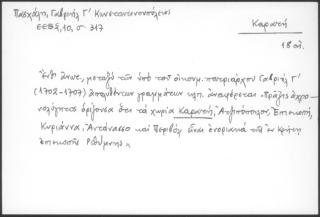 Πασχάλη, Γαβριήλ Γ' Κωνσταντινουπόλεως
ΕΕΒΣ, 10, σ. 317
Καρωτή
18 αἰ.
Ἔνθ' ἄνω, μεταξύ τῶν ὑπό τοῦ οἰκουμ. πατριάρχου Γαβριήλ Γ'
(1702-1707) ἀπολυθέντων γραμμάτων κλπ. ἀναφέρεται "Πρᾶξις ἀχρο-
νολόγητος ὁρίζουσα ὅτι τά χωρία Καρωτή, Ἀτζιπόπουλος, Ἐπισκοπή,
Κυριάννα, Ἀντάνασσο καί Περιβόλι εἶναι ἐνοριακά τῆς ἐν Κρήτῃ
ἐπισκοπῆς Ρεθύμνης"